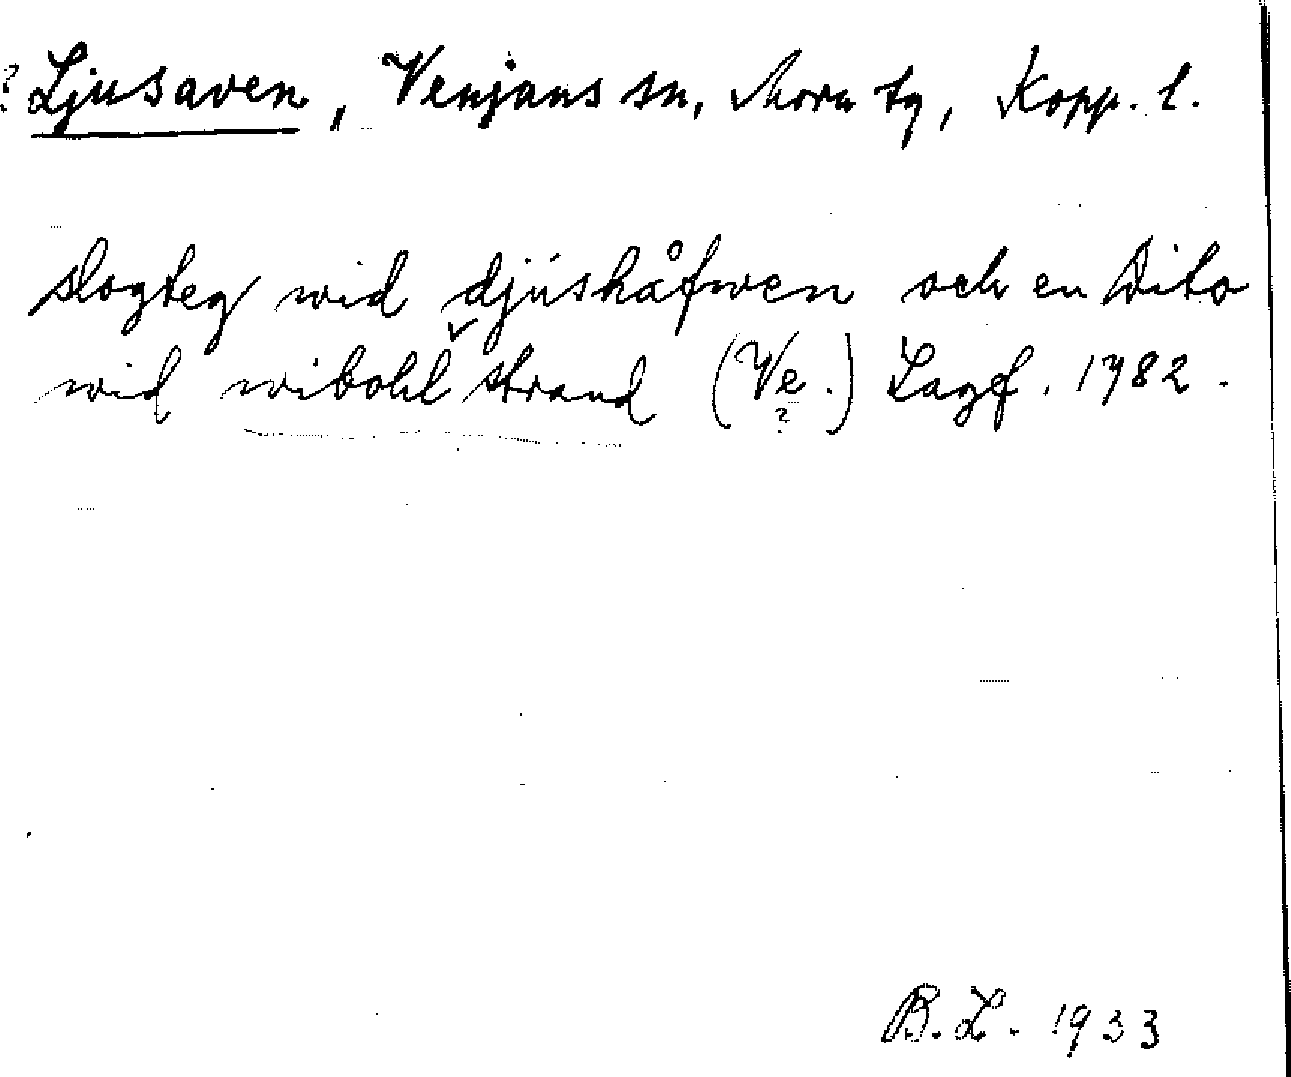 ? Ljusaven, Venjans sn, Mora tg, Kopp. l.
slogteg wid djushåfwen och en Dito
wid wibohl strand (Ve.) Lagf. 1782.
?
B.L. 1933